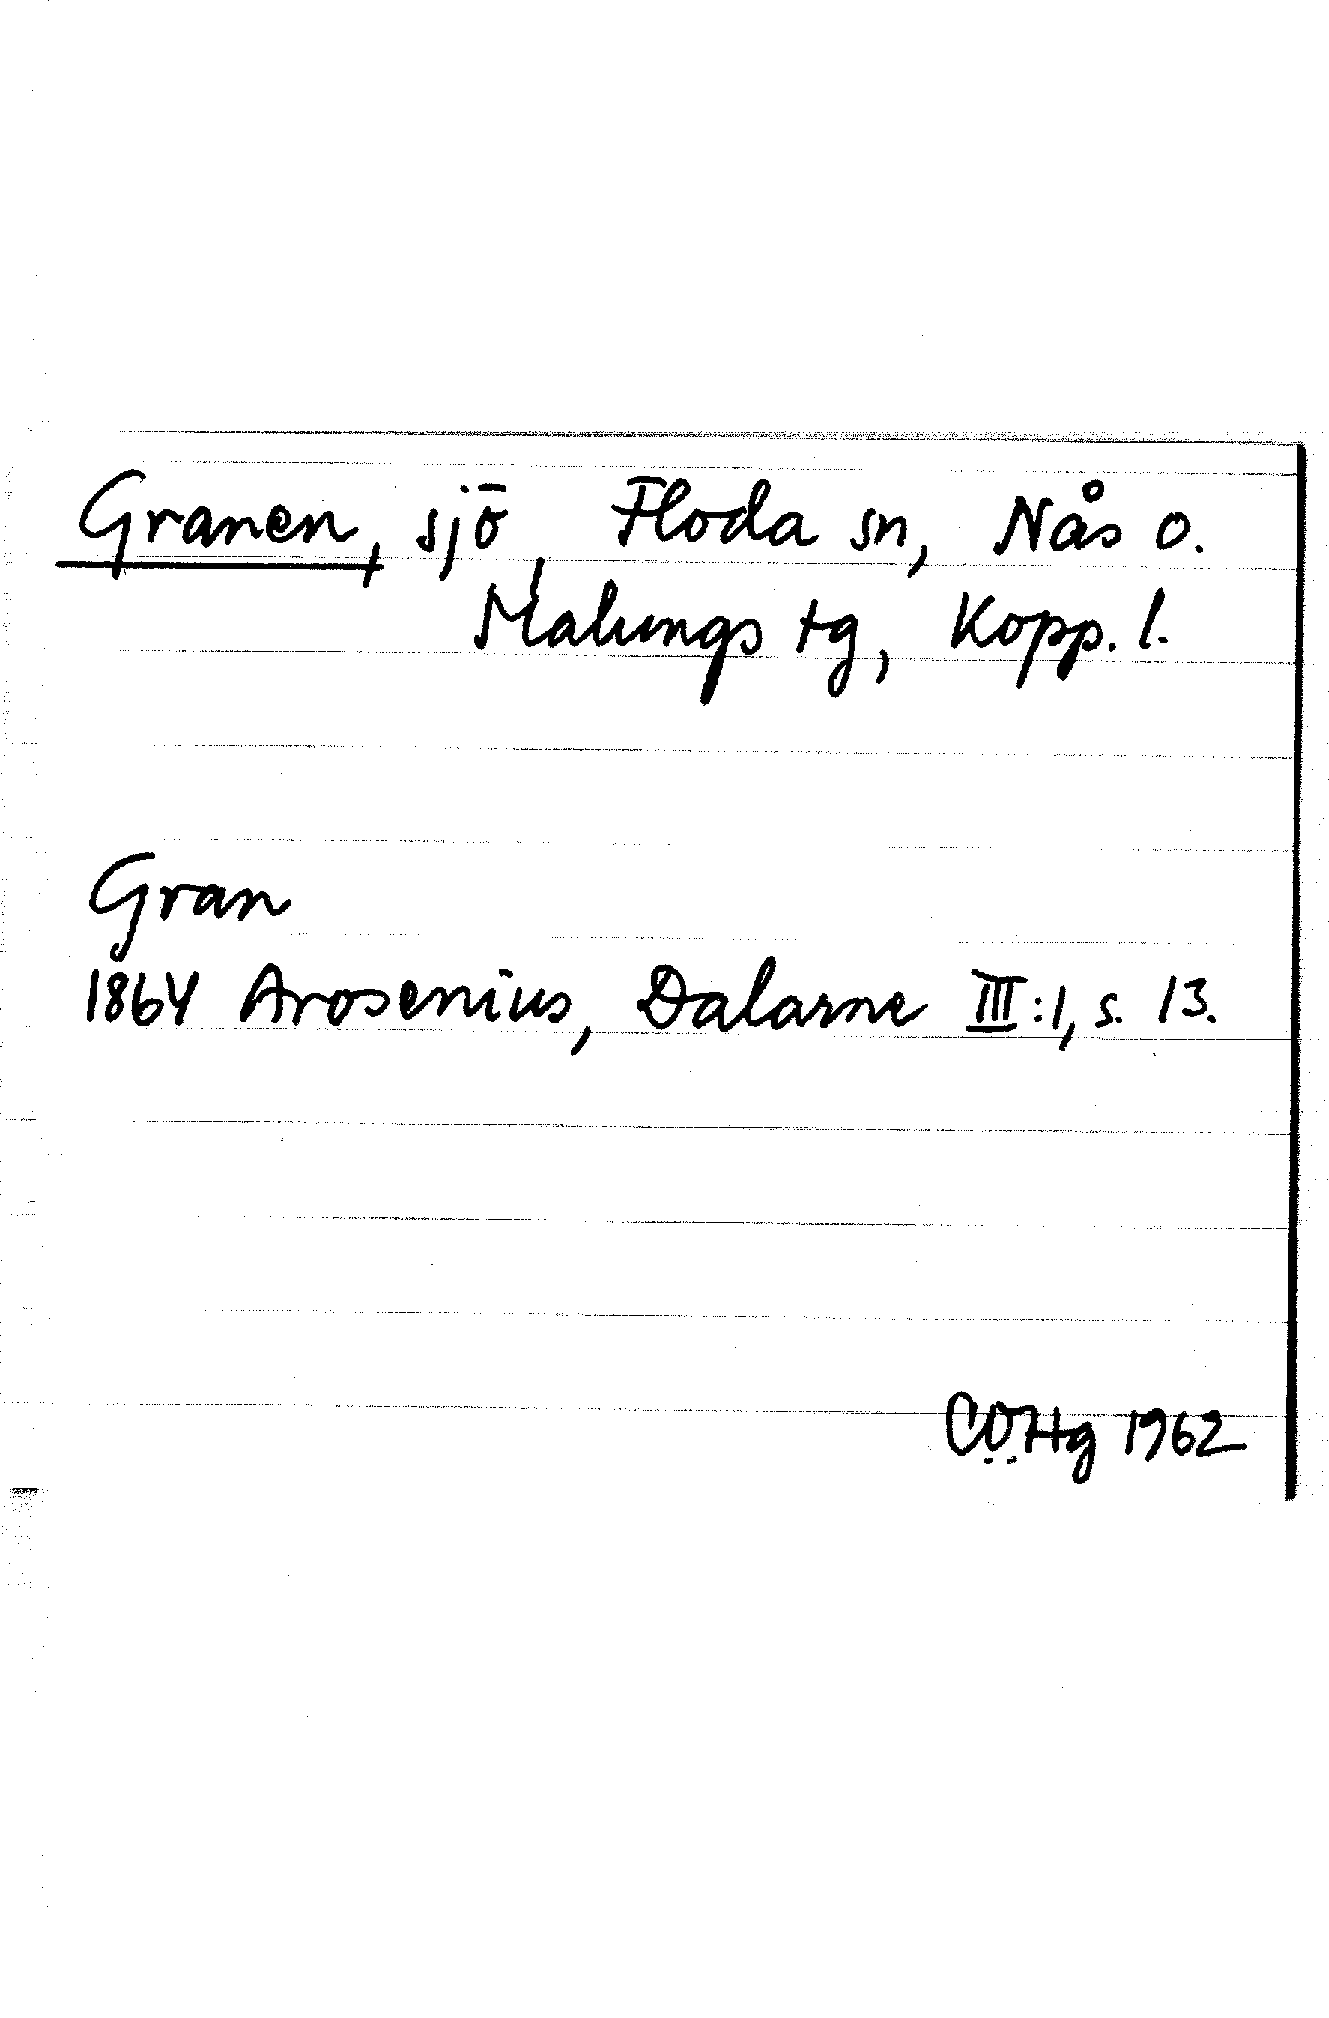 Granen, sjö Floda sn, Nås o.
Malungs tg, Kopp. l.
Gran
1864 Arosenius, Dalarne III:1, s. 13.
CÖHg 1962